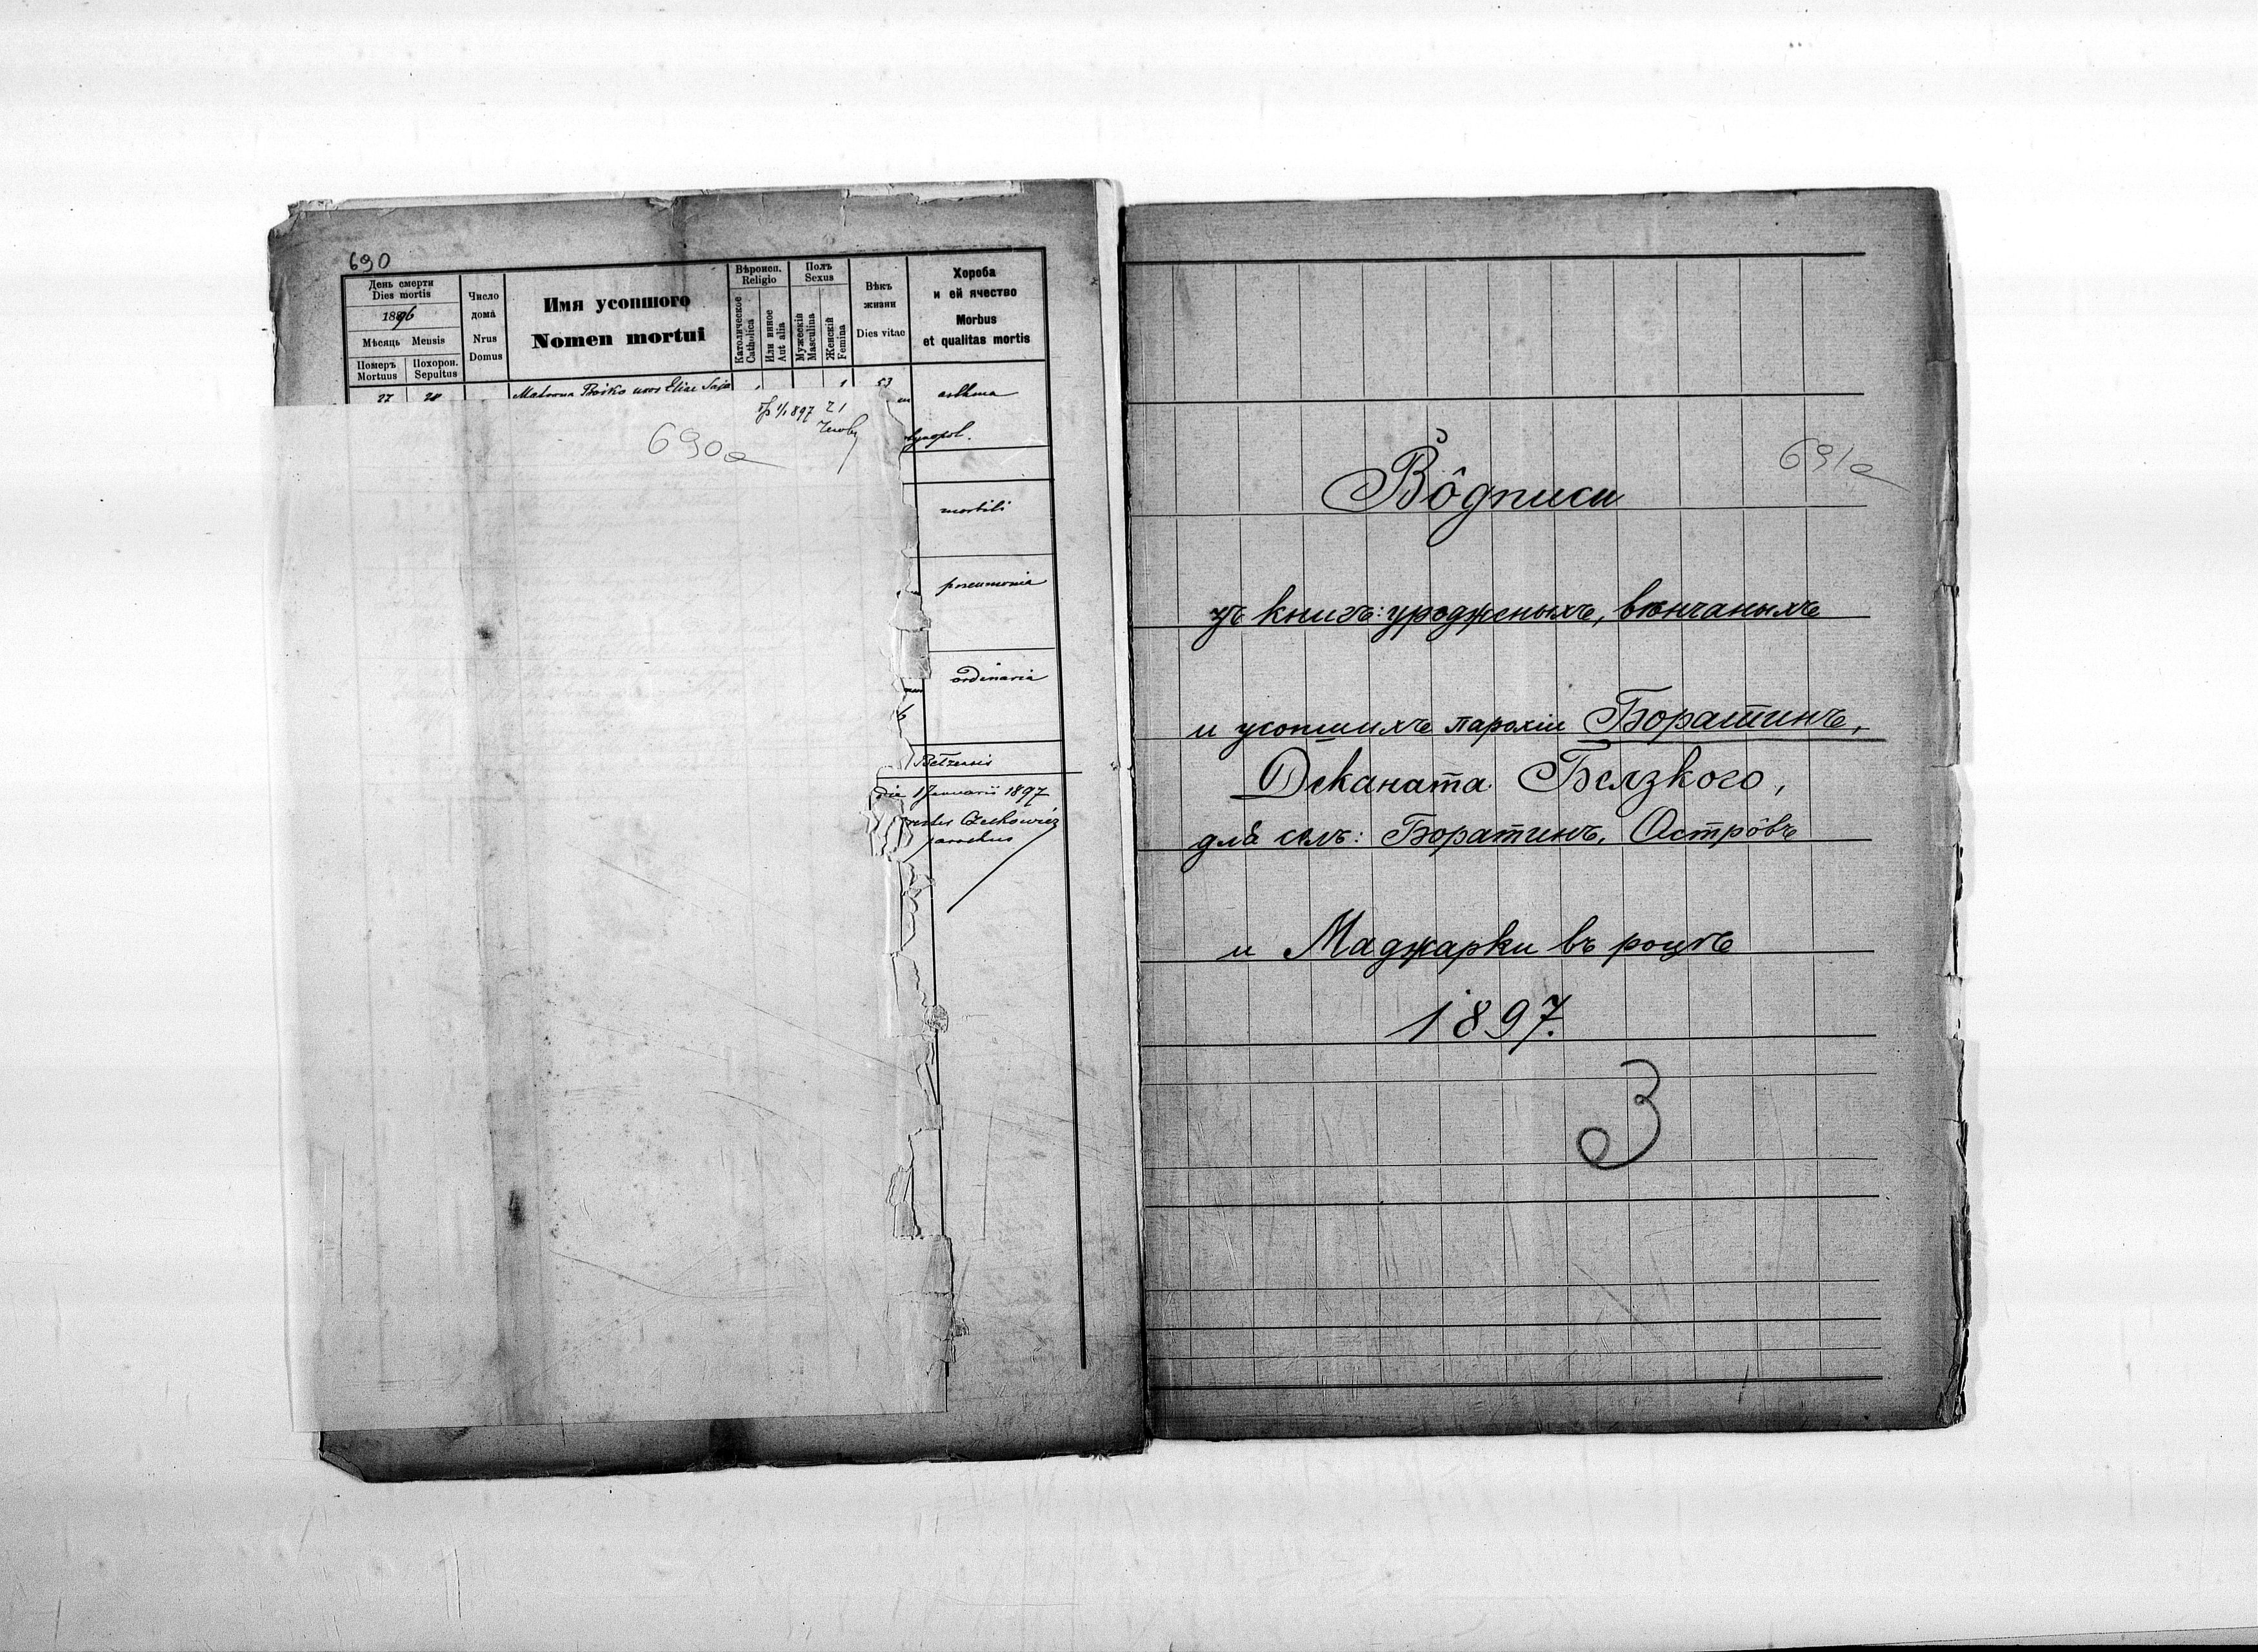 690
День смерти
Dies mortis
1896
Мѣсяць Mensis
Померъ Похорон.
Mortuus Sepultus
Число
дома
Nrus
Domus
Имя усопшого
Nomen mortui
Вѣроисп.
Religio
Католическое
Catholica
Или инное
Aut alia
Полъ
Sexus
Мужескій
Masculina
Женскій
Femina
Вѣкъ
жизни
Dies vitae
Хороба
и ей ячество
Morbus
et qualitas mortis
27 28 Matrona Bośko uxor Eliae 1 1 53 asthma
1/1 897
690a
morbili
pneumonia
ordinaria
Betzensis
die 1 Januarii 1897
Czechowicz
parochus
691a
Вôдписи
зъ книгъ: урожденыхъ, вѣнчаныхъ
и усопшихъ парохіи Боратинъ,
Деканата Белзкого,
для селъ: Боратинъ, Острôвъ
и Маджарки въ роцѣ
1897.
3